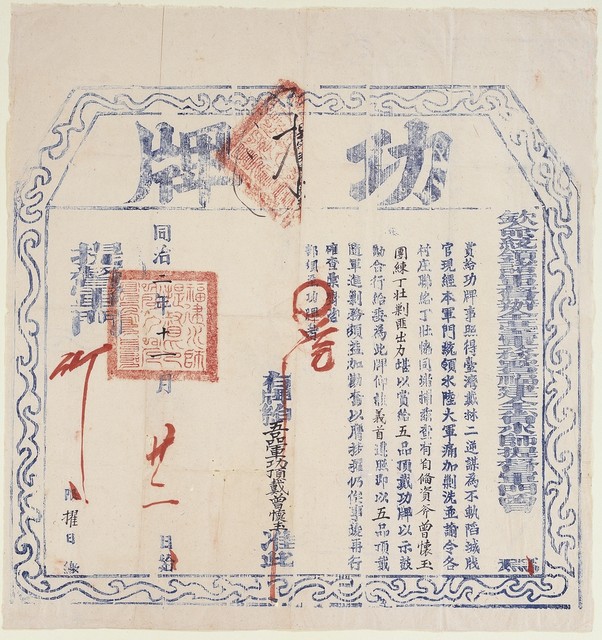 功牌
欽命統領
福建全省水師提督軍門曾 為
賞給功牌事照得臺灣戴林二逆謀為不軌陷城戕
官現經本軍門統領水陸大軍痛加剿洗並諭令各
村庄聯絡丁壯協同堵捕茲查有自備資斧曾懷玉
團練丁壯剿匪出力堪以賞給五品頂戴功牌以示鼓
勵合行給委為此牌仰該義首遵照即以五品頂戴
隨軍進剿務須益加勤奮以膺拔擢仍俟事竣再行
確查彙
須至功牌者
右牌給五品軍功頂戴曾懷玉准此
同治二年十一月廿二日給
福建水師提督
提督軍門
限 擢日繳